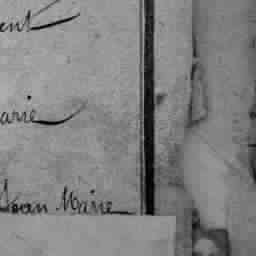 ent
arie
Jean Marie